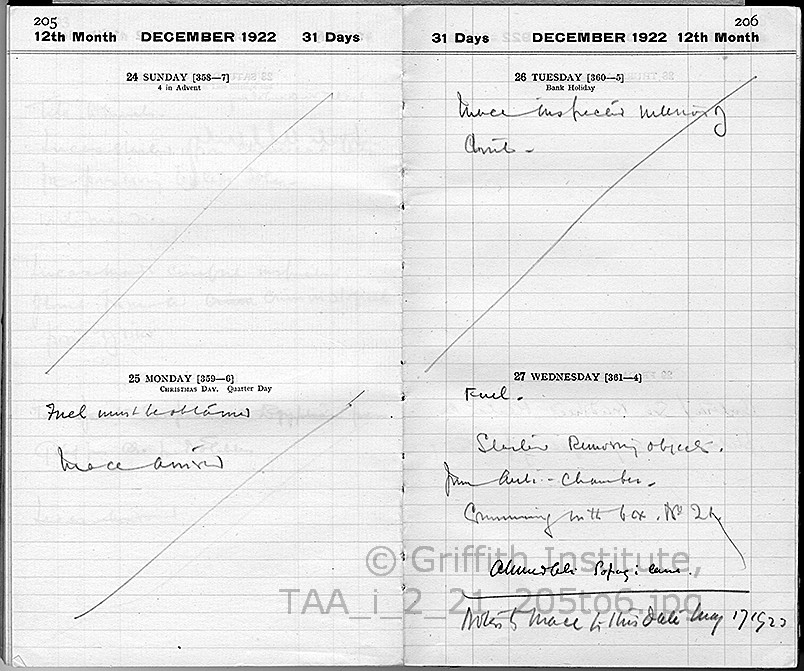 205
12th Month DECEMBER 1922 31 Days
24 SUNDAY [358—7]
4 in Advent
25 MONDAY [359—6]
CHRISTMAS DAY. Quarter Day
Fuel must be obtained
Mace arrived
206
31 Days DECEMBER 1922 12th Month
26 TUESDAY [360—5]
Bank Holiday
Mace inspected interior of
Tomb -
27 WEDNESDAY [361—4]
Fuel.
Started Removing objects.
from Anti-Chamber.
Commencing with box. No 21
Notes to Mace to this date May 17 1923
© Griffith Institute,
TAA_i_2_21_205to6.jpg